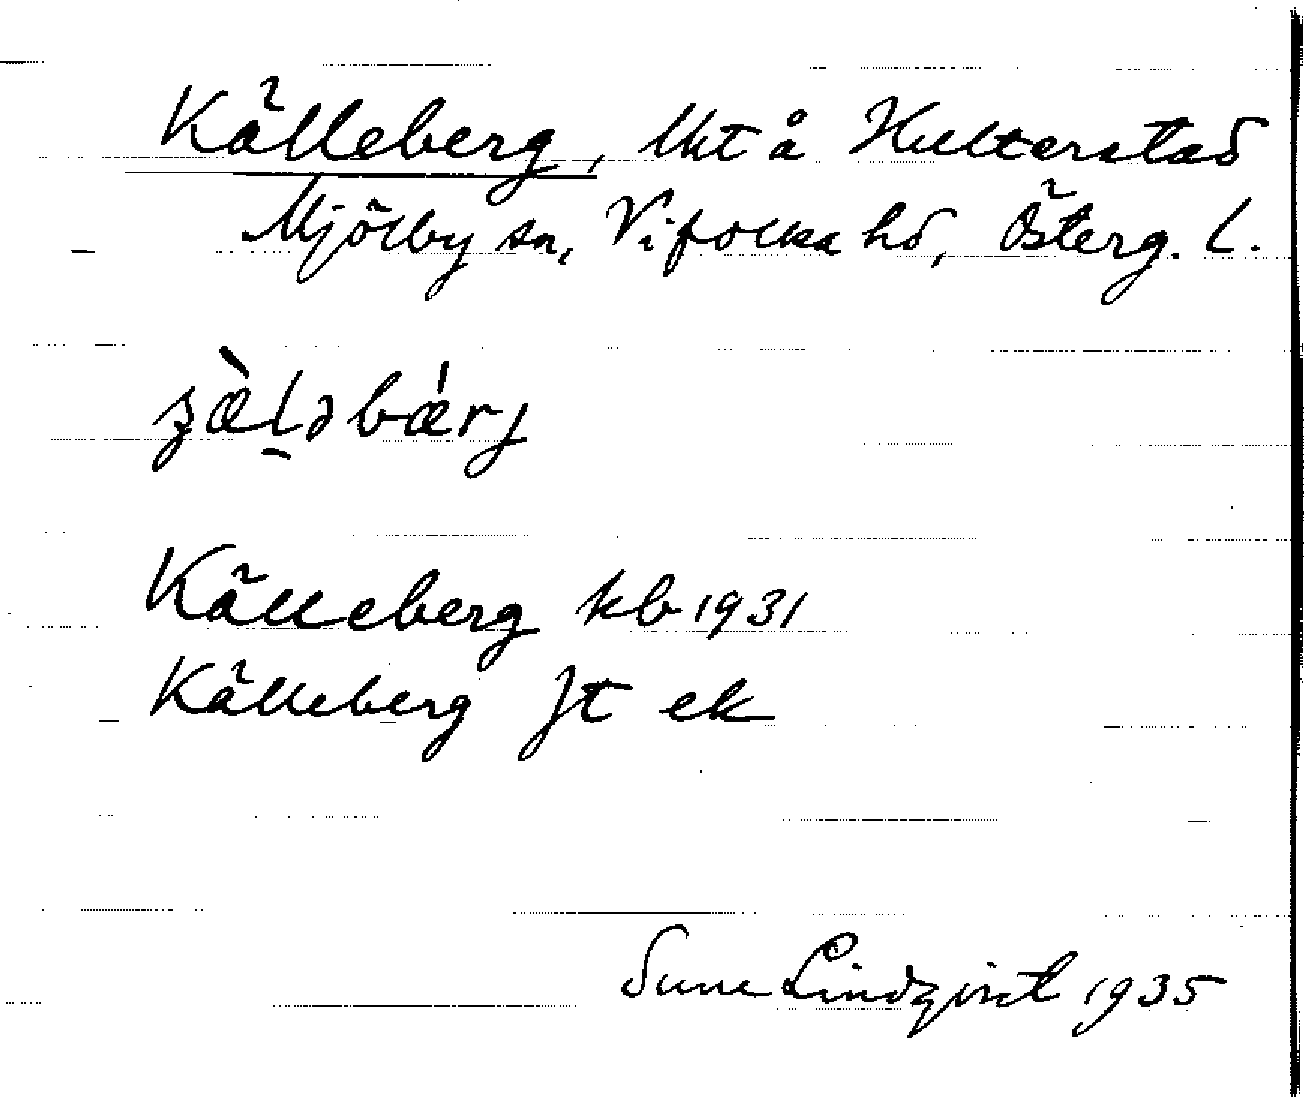 Källeberg, lht å Hulterstad
Mjölby sn, Vifolka hd, Österg. l.
Källeberg kb 1931
Källeberg Jt ek
Sune Lindqvist 1935